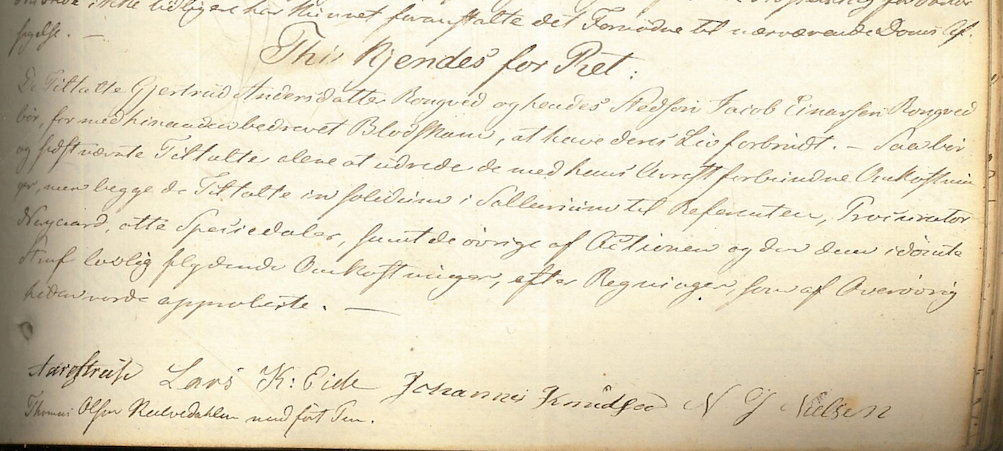 ikke tidligere har kunnet foranstalte det Fornødne til nærværende Doms Af-
sigelse. —
Thi Kjendes for Ret:
De Tiltalte Gjertrud Andersdatter Rongved og hendes Stedsøn Jacob Einarsen Rongved
bør, for med hinanden bedrevet Blodskam, at have deres Liv forbrudt. — Saa bør
og sidstnævnte Tiltalte alene at udrede de med hans Arrest forbundne Omkostnin-
ger, men begge de Tiltalte in solidum i Sallarium til Referenten, Procurator
Nygaard, otte Speciedaler, samt de øvrige af Actionen og den dem idømte
Straf lovlig flydende Omkostninger, efter Regninger, som af Øvrigheden
vorde approberte. —
Lars K: Eide Johannes Knudsen N J Nielsen
Thomas Olsen med ført Pen.